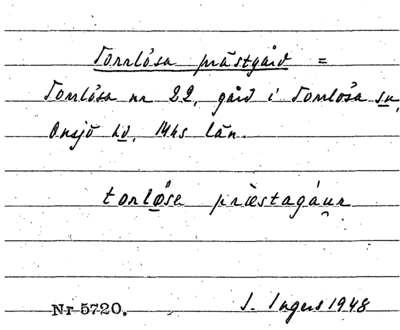 Torrlösa prästgård =
Torrlösa nr 22, gård i Torrlösa sn,
Onsjö hd, Mhs län.
torløse præstagáuɽ
Nr 5720.
I. Ingers 1948